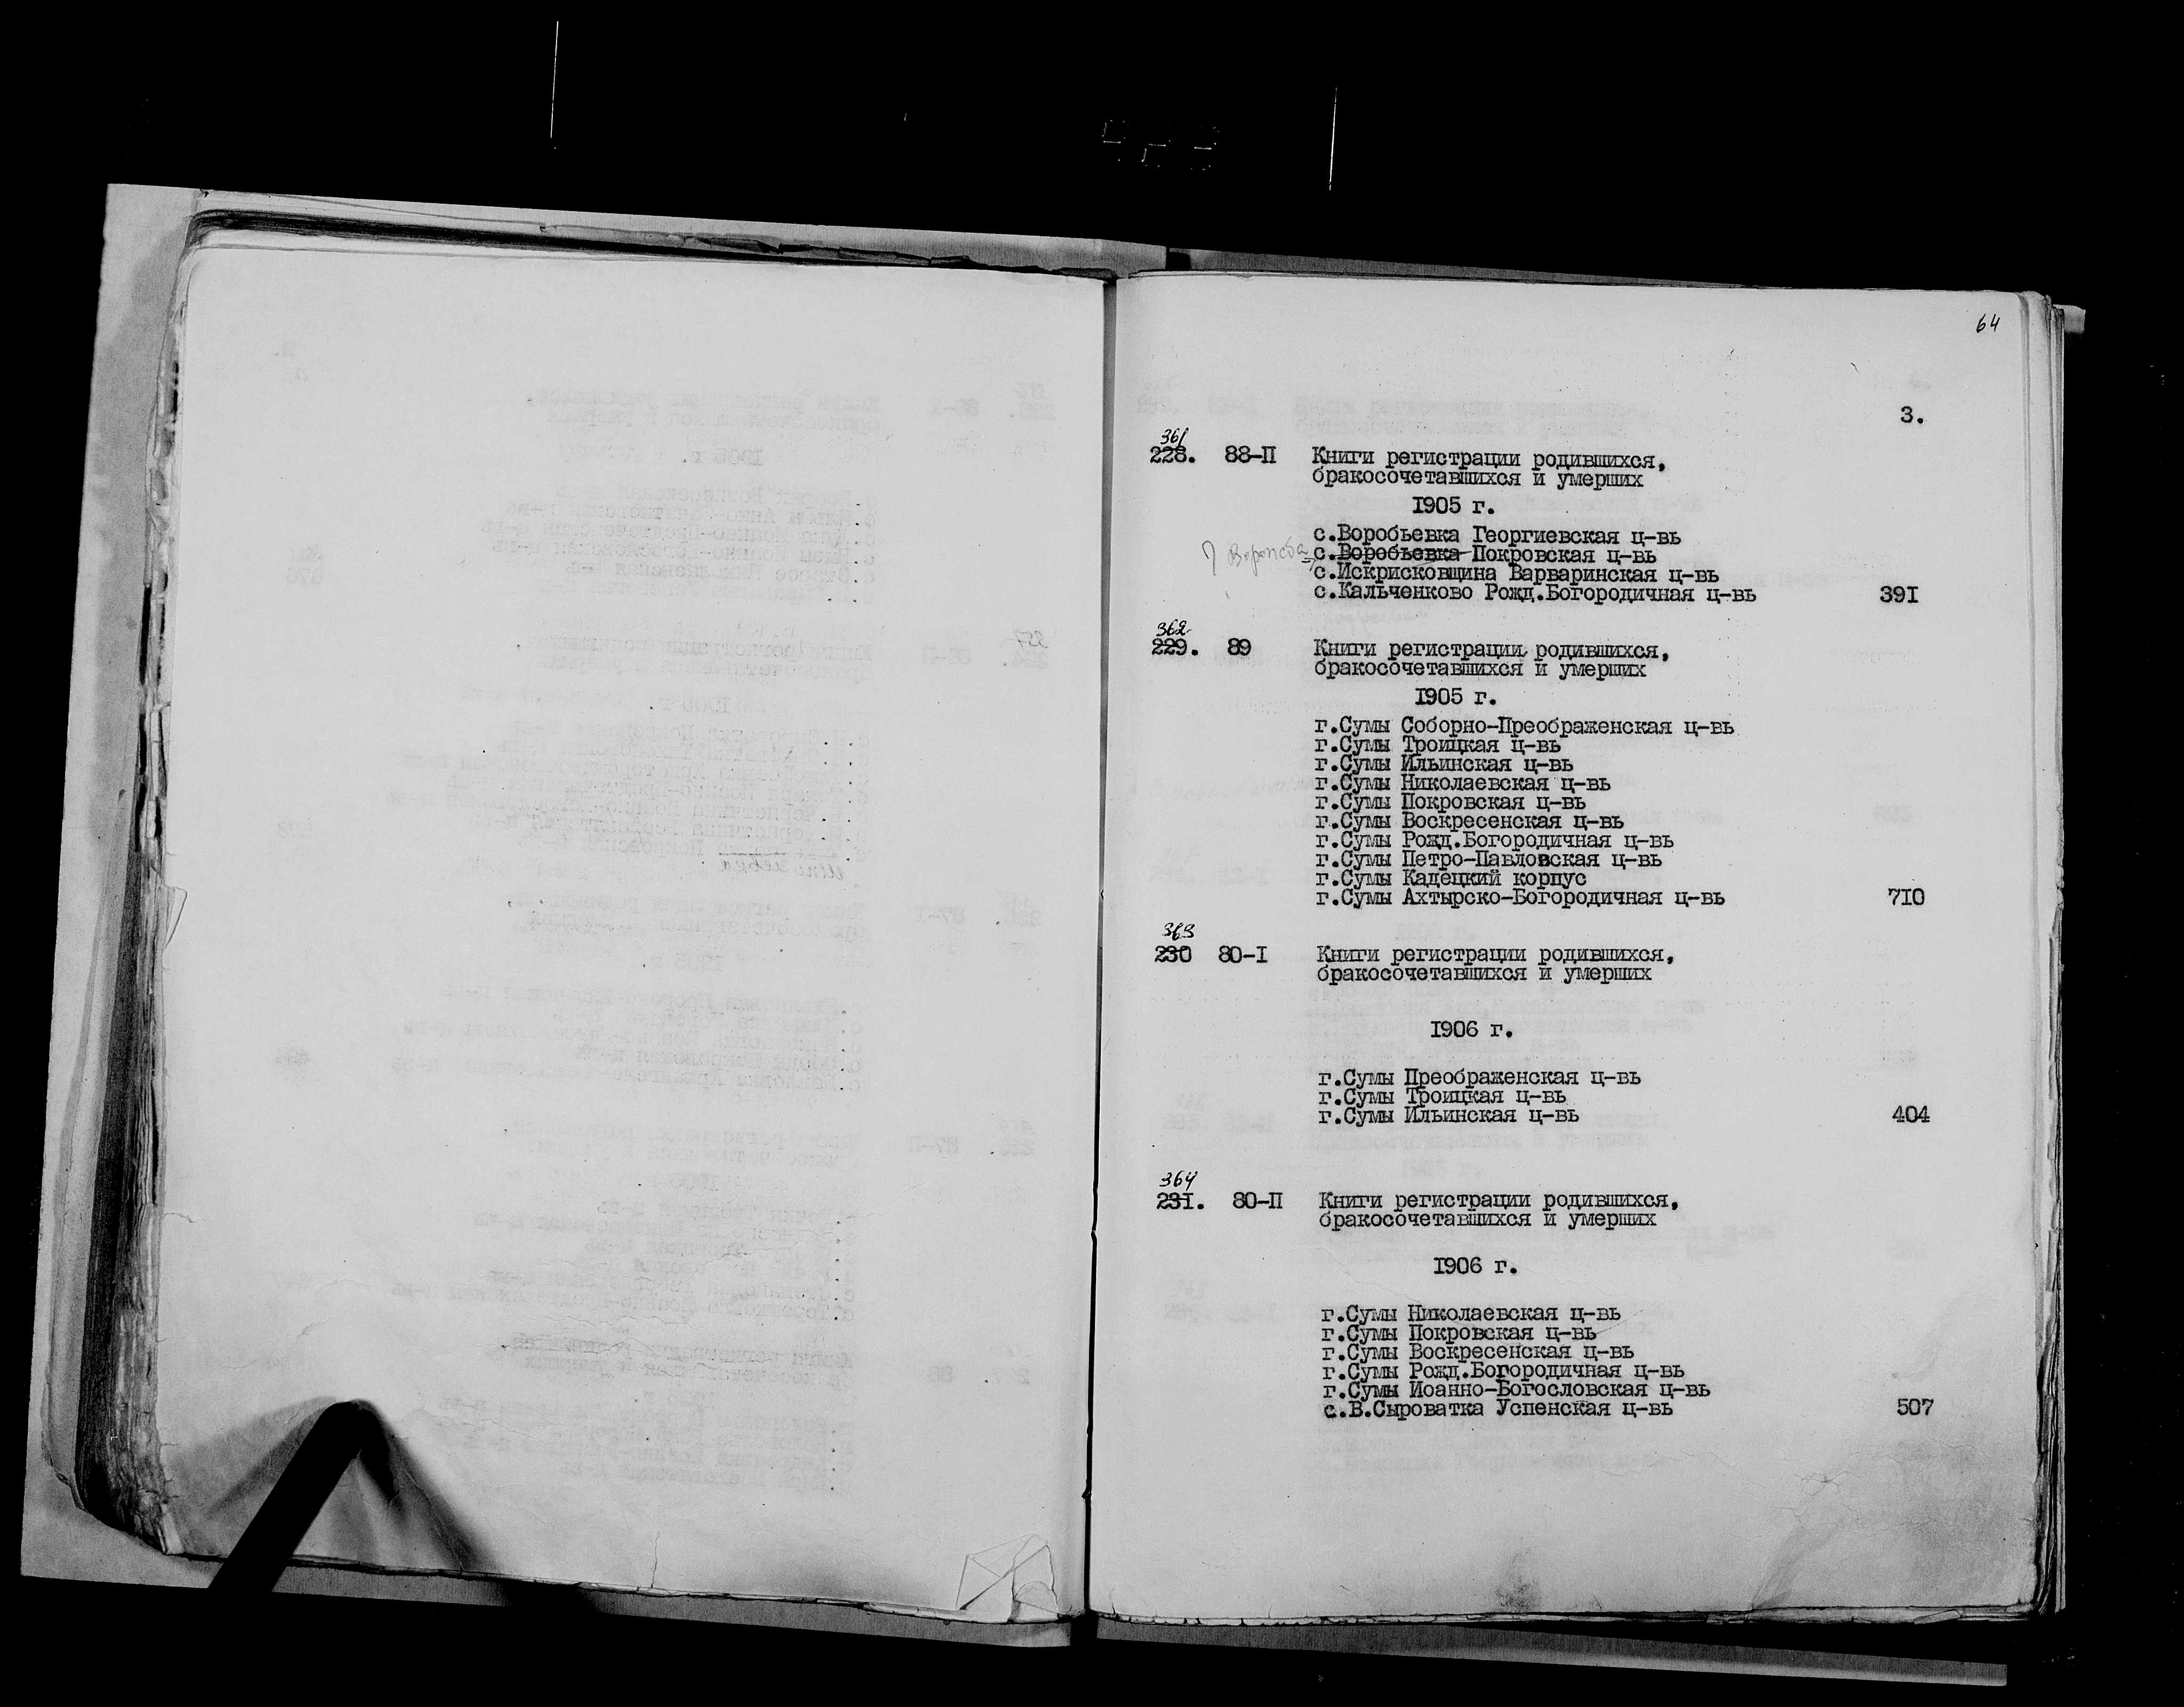 64
3.
361
228. 88-П Книги регистрации родившихся,
бракосочетавшихся и умерших
1905 г.
с.Воробьевка Георгиевская ц-вь
? Ворожба с.Воробьевка Покровская ц-вь
с.Искрисковщина Варваринская ц-вь
с.Кальченково Рожд.Богородичная ц-вь 391
362
229. 89 Книги регистрации родившихся,
бракосочетавшихся и умерших
1905 г.
г.Сумы Соборно-Преображенская ц-вь
г.Сумы Троицкая ц-вь
г.Сумы Ильинская ц-вь
г.Сумы Николаевская ц-вь
г.Сумы Покровская ц-вь
г.Сумы Воскресенская ц-вь
г.Сумы Рожд.Богородичная ц-вь
г.Сумы Петро-Павловская ц-вь
г.Сумы Кадецкий корпус
г.Сумы Ахтырско-Богородичная ц-вь 710
363
230 80-I Книги регистрации родившихся,
бракосочетавшихся и умерших
1906 г.
г.Сумы Преображенская ц-вь
г.Сумы Троицкая ц-вь
г.Сумы Ильинская ц-вь 404
364
231. 80-П Книги регистрации родившихся,
бракосочетавшихся и умерших
1906 г.
г.Сумы Николаевская ц-вь
г.Сумы Покровская ц-вь
г.Сумы Воскресенская ц-вь
г.Сумы Рожд.Богородичная ц-вь
г.Сумы Иоанно-Богословская ц-вь
с.В.Сыроватка Успенская ц-вь 507